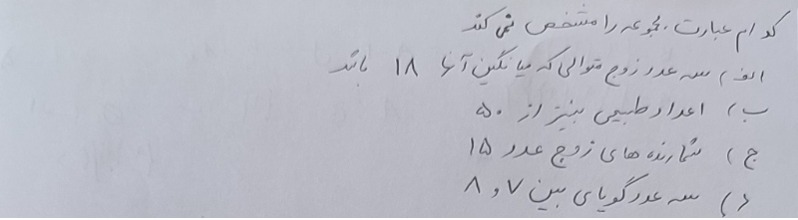 کدام عبارت، مجموعه را مشخص نمی کند
الف) سه عدد زوج متوالی که میانگین آنها ۱۸ باشد
ب) اعداد طبیعی بیشتر از ۵۰
ج) شمارنده های زوج عدد ۱۵
د) سه عدد گویای بین ۷ و ۸